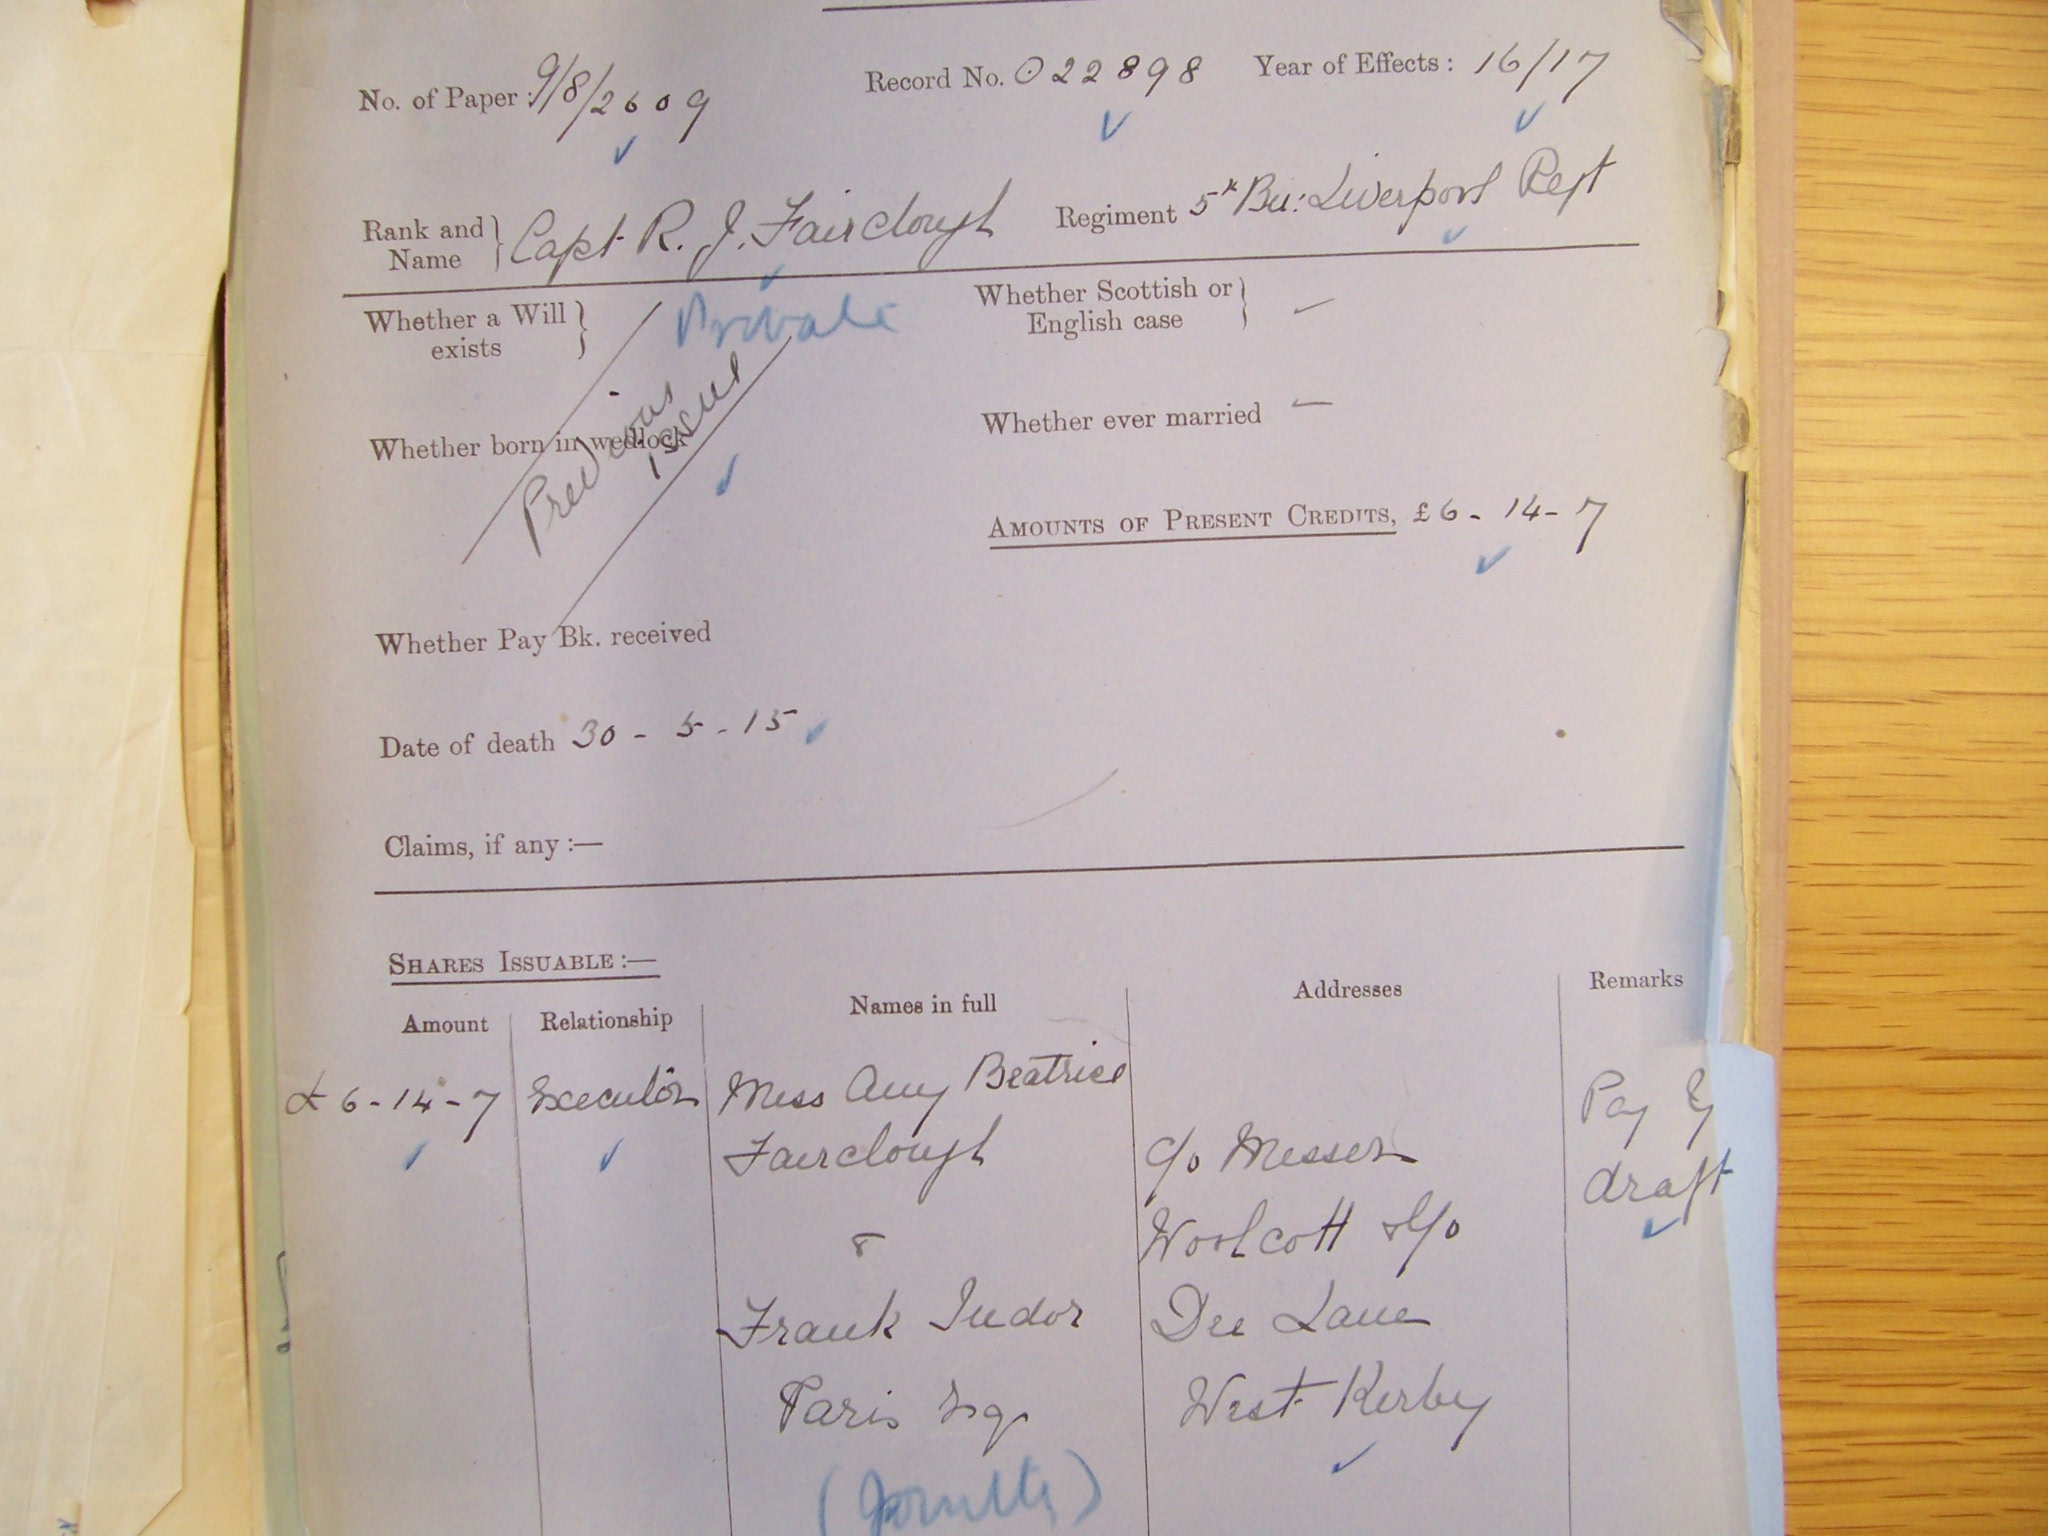 No. of Paper : 9/8/2609 Record No. 022898 Year of Effects : 16/17
Rank and Name } Capt R. J. Fairclough Regiment 5th Bn: Liverpool Regt
Whether a Will exists } Whether Scottish or English case } —
Private
Previous issue
Whether born in wedlock Whether ever married —
AMOUNTS OF PRESENT CREDITS, £6 - 14 - 7
Whether Pay Bk. received
Date of death 30 - 5 - 15
Claims, if any :—
SHARES ISSUABLE :—
Amount Relationship Names in full Addresses Remarks
£6 - 14 - 7 Executors Miss Amy Beatrice Pay by
Fairclough c/o Messrs draft
& Woolcott & Co
Frank Tudor Dee Lane
Paris Esq. West Kerby
(Jointly)